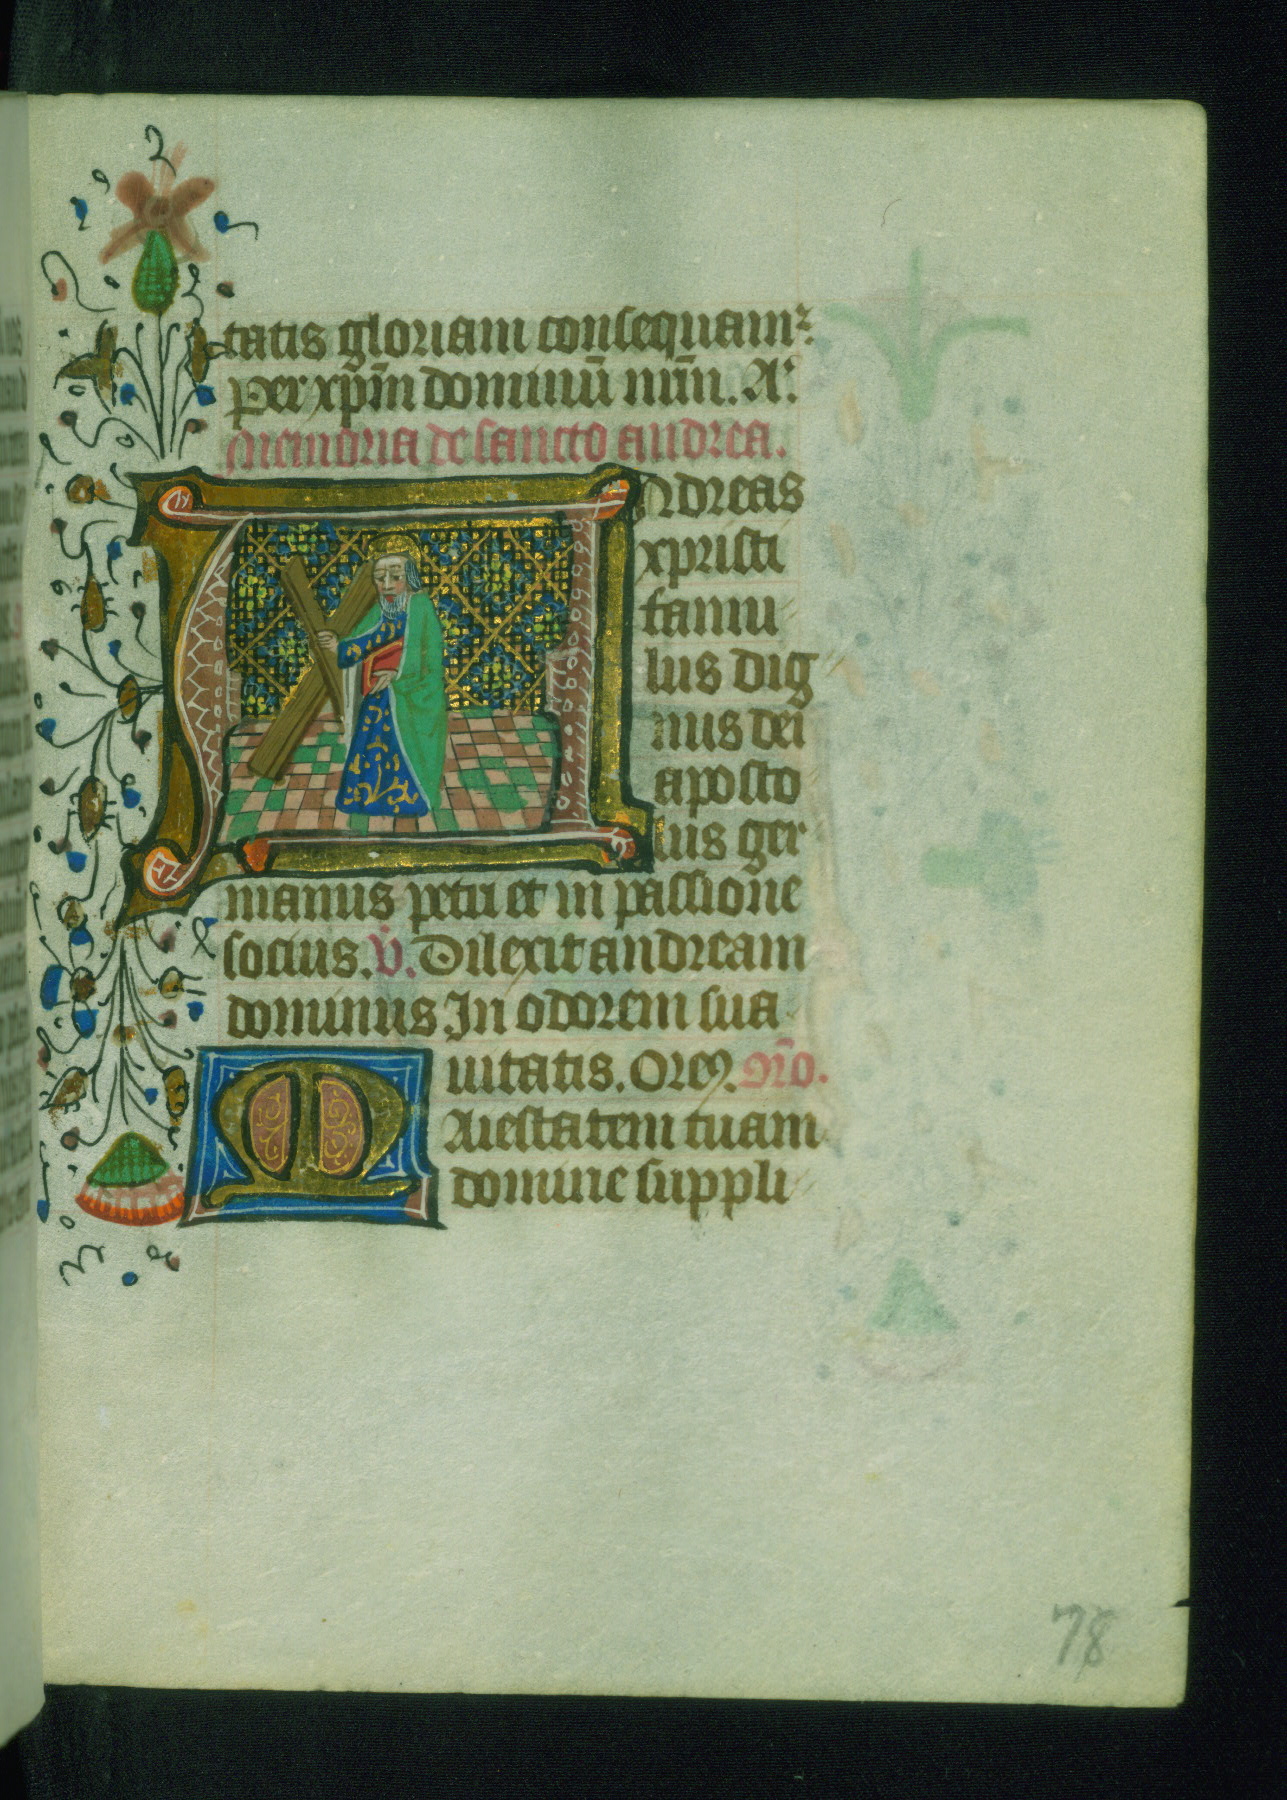 tatis gloriam consequam᷑
Per xp̄m dominū nr̄m. A.
Memoria de sancto andrea.
Andreas
xpristi
famu
lus dig
nus dei
aposto
lus ger
manus petri et in passione
socius. V̇. Dilexit andream
dominus In odorem sua
uitatis. Orem9. Or̄o.
Maiestatem tuam
domine suppli
78